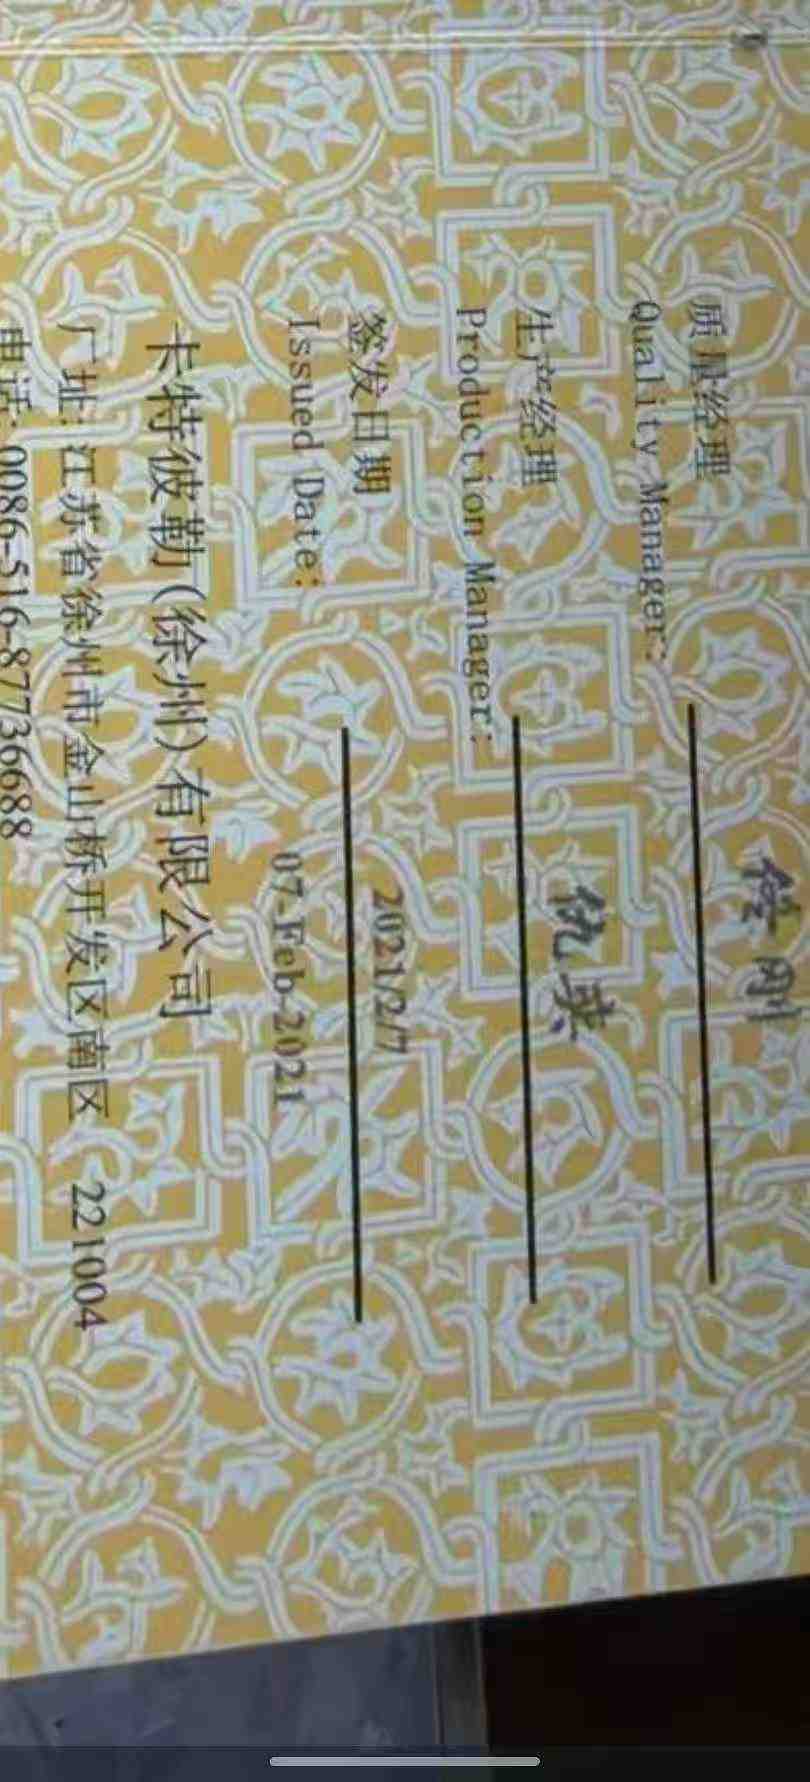 质量经理
Quality Manager:
刚
生产经理
Production Manager:
仇英
签发日期
2021/2/7
Issued Date:
07-Feb-2021
卡特彼勒(徐州)有限公司
厂址:江苏省徐州市金山桥开发区南区 221004
电话:0086-516-87736688